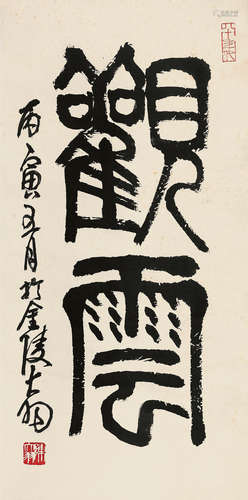 觀雲
丙寅五月於金陵大羽